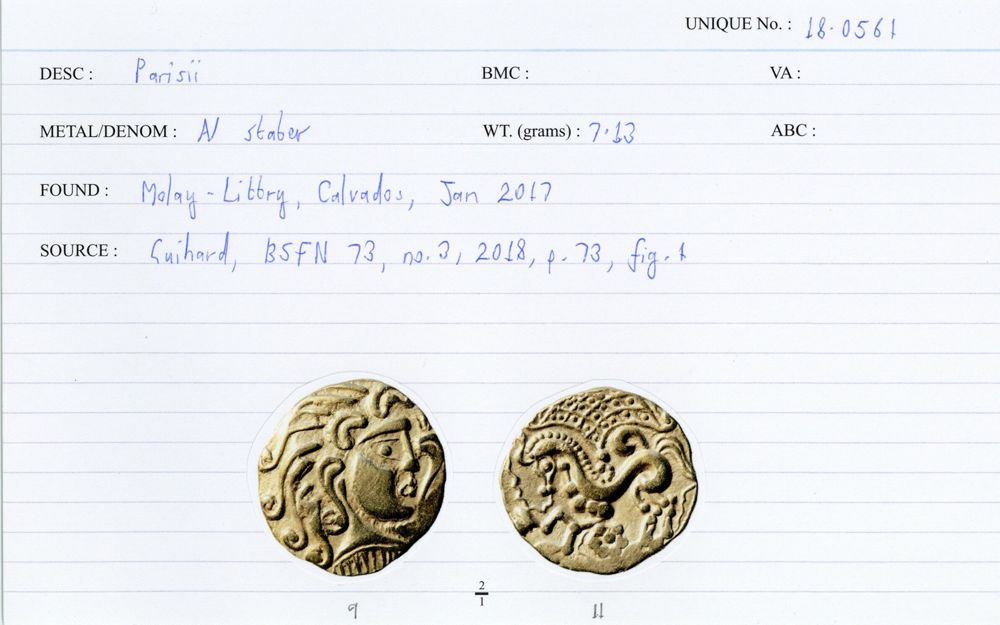 UNIQUE No. : 18·0561
DESC : Parisii BMC : VA :
METAL/DENOM : N stater WT. (grams) : 7·13 ABC :
FOUND : Molay-Littry, Calvados, Jan 2017
SOURCE : Guihard, BSFN 73, no. 3, 2018, p. 73, fig. 1
2
1
9 11